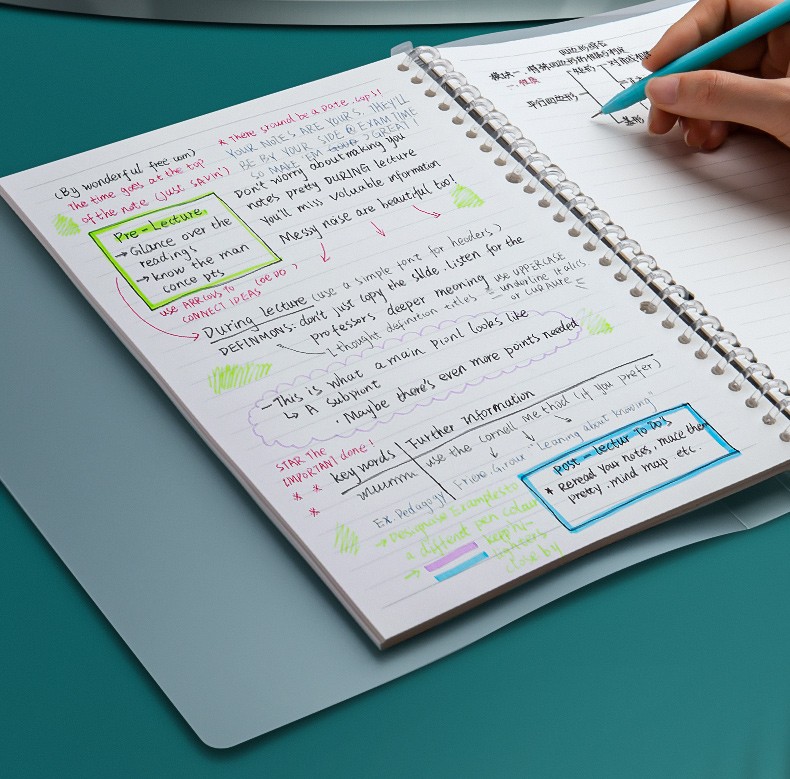 (By wonderful free wm)
The time goes at the top
of the note (just sAyin')
* There sround be a Date, cups!
YOUR NOTES ARE YOURS, THEY'LL
BE BY YOUR SIDE @ EXAM TIME
SO MAKE 'EM GREAT
Don't worry about making you
notes pretty DURING lecture
You'll miss valuable information
Messy noise are beautiful too!
Pre - Lecture
→ Glance over the
readings
→ know the man
conce pts
use ARROWS TO
CONNECT IDEAS
During lecture (use a simple font for headers)
DEFINMONS: don't just copy the slide. listen for the
professors deeper meaning
I thought definition titles
= use UPPERCASE
= underline italics
or =
— This is what a main pionl looks like
↳ A subpiont
· Maybe there's even more points needed
STAR The
IMPORTANT done!
* *
*
key words | Further Information
use the cornell method (if you prefer)
EX. Pedagogy
"Leaning about knowing"
→ Designase Examples to
a differet pen colour
→ keep hi-
lighters
close by
Post - lectur To Do's
* Reread Your notes, mace them
pretty. mind map. etc.
平行四边形
矩形